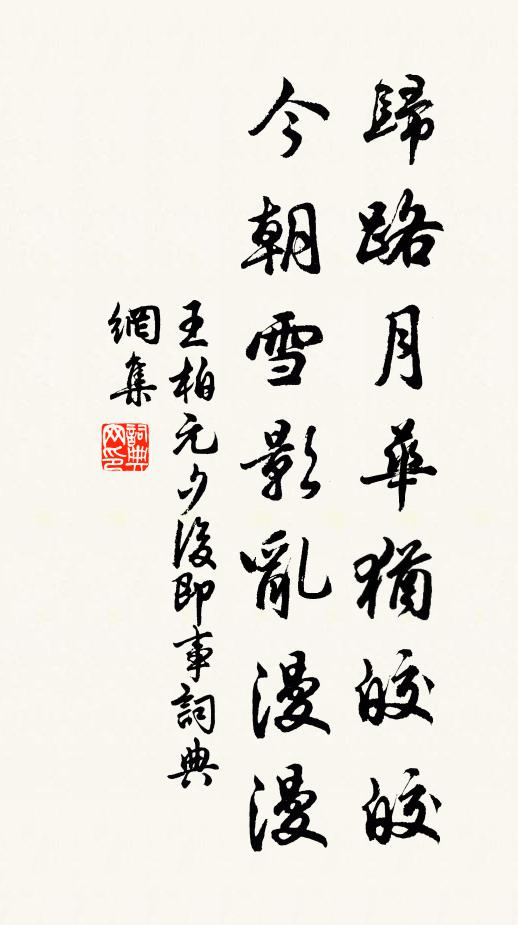 歸路月華猶皎皎
今朝雪影亂漫漫
王柏元夕後即事詞典
網集
詞典
网印